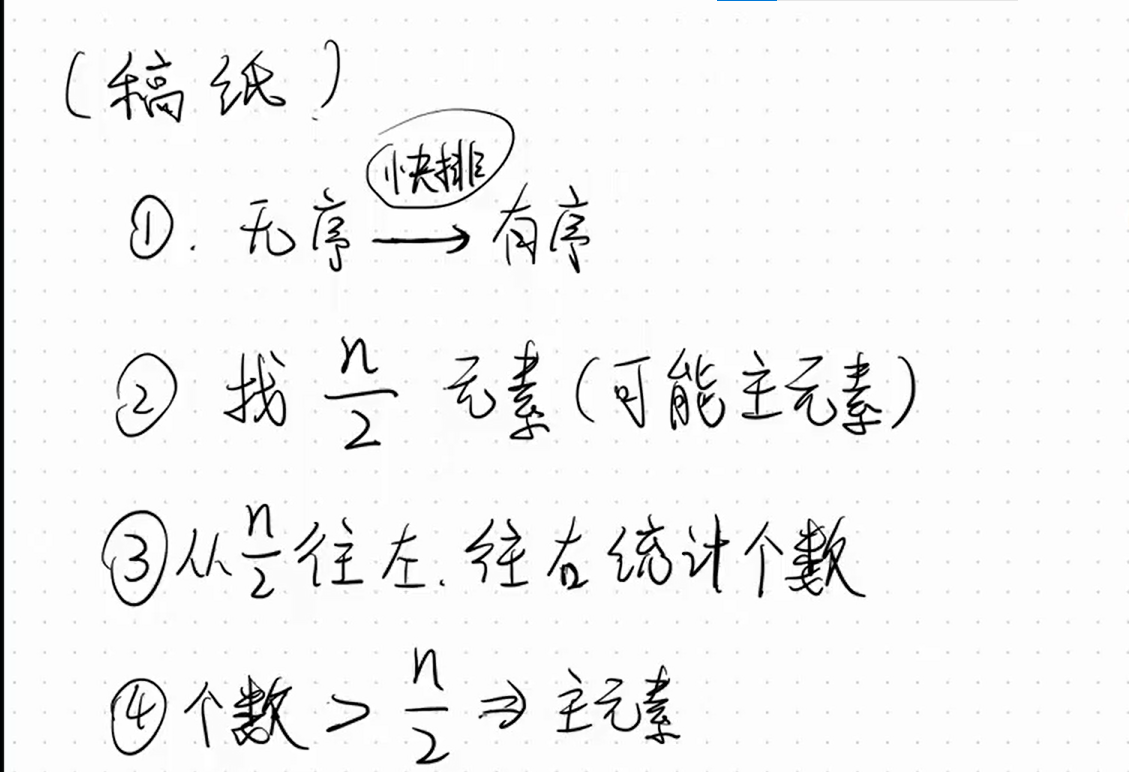 (稿纸)
快排
①. 无序 → 有序
② 找 n/2 元素(可能主元素)
③ 从 n/2 往左.往右统计个数
④ 个数 > n/2 ⇒ 主元素